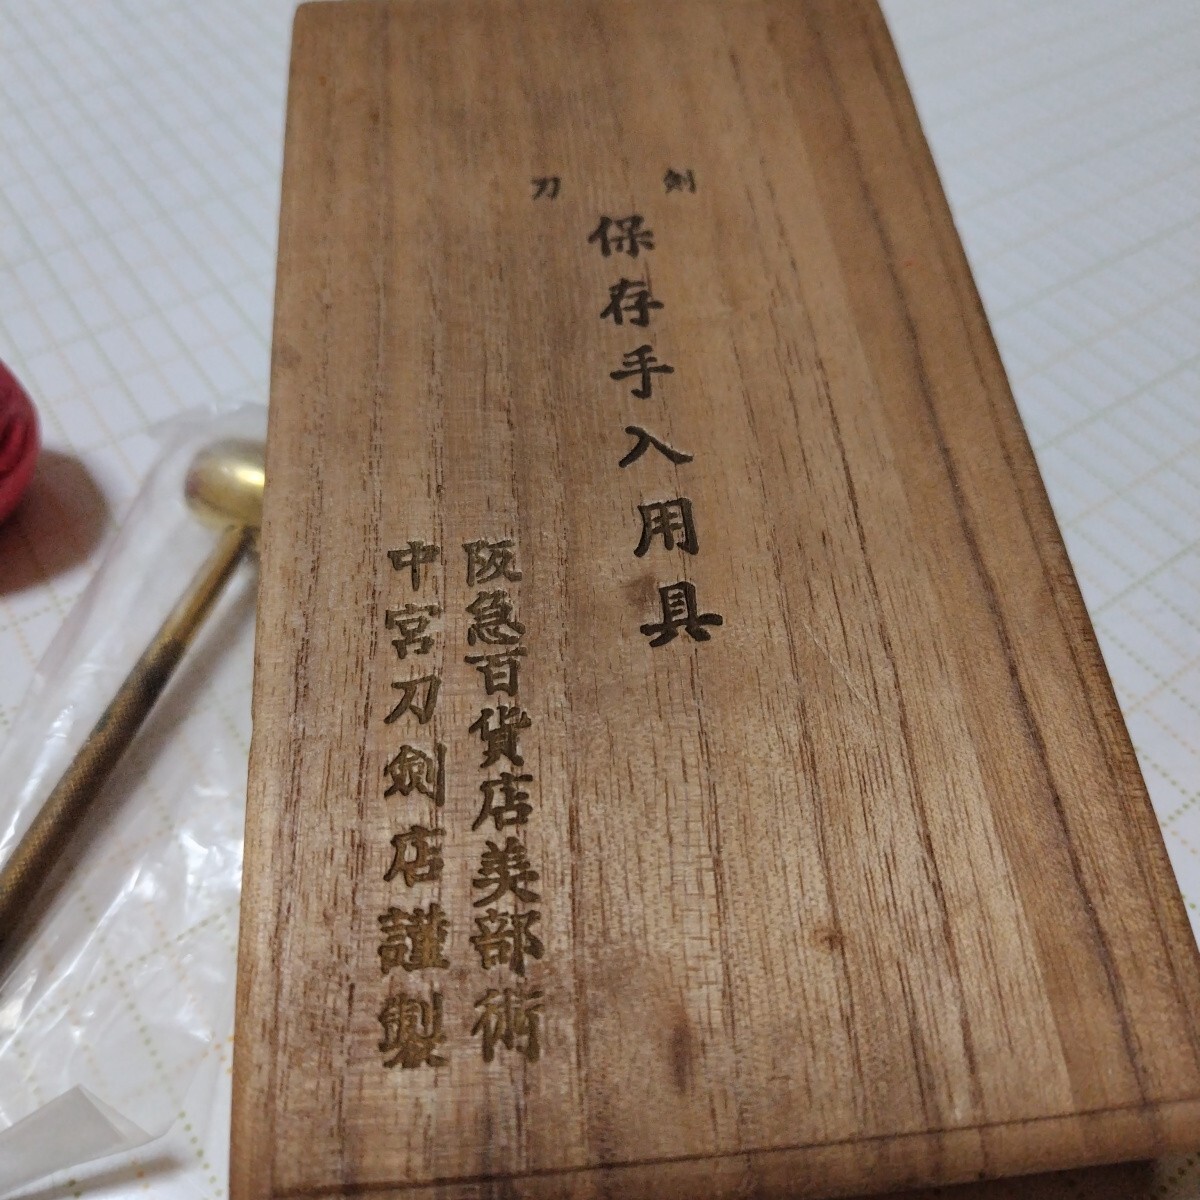 刀剣
保存手入用具
阪急百貨店美部術
中宮刀剣店謹製